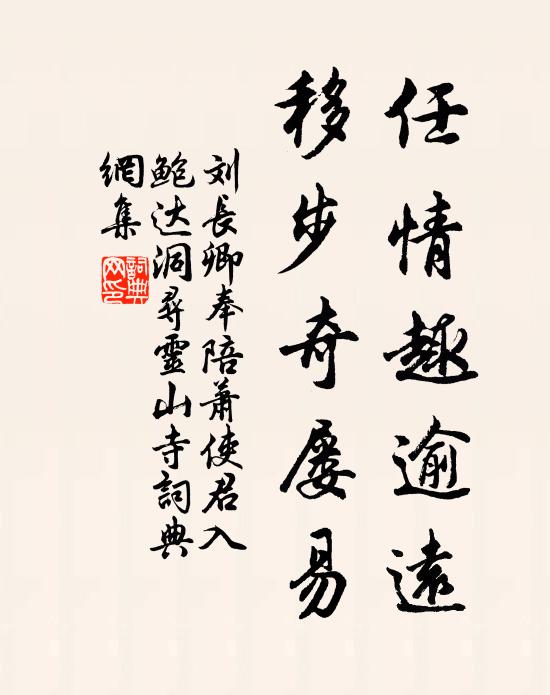 任情趣逾遠
移步奇屡易
刘長卿奉陪蕭使君入
鲍达洞尋靈山寺詞典
網集
詞典網印